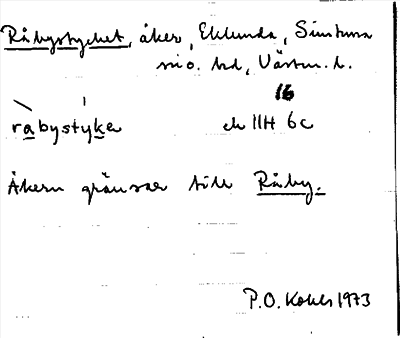 Råbystycket, åker, Eklunda, Simtuna
sn o. hd, Västm. l.
16
rabystyke ek 11H 6c
Åkern gränsar till Råby.
P.O. Kohls 1973